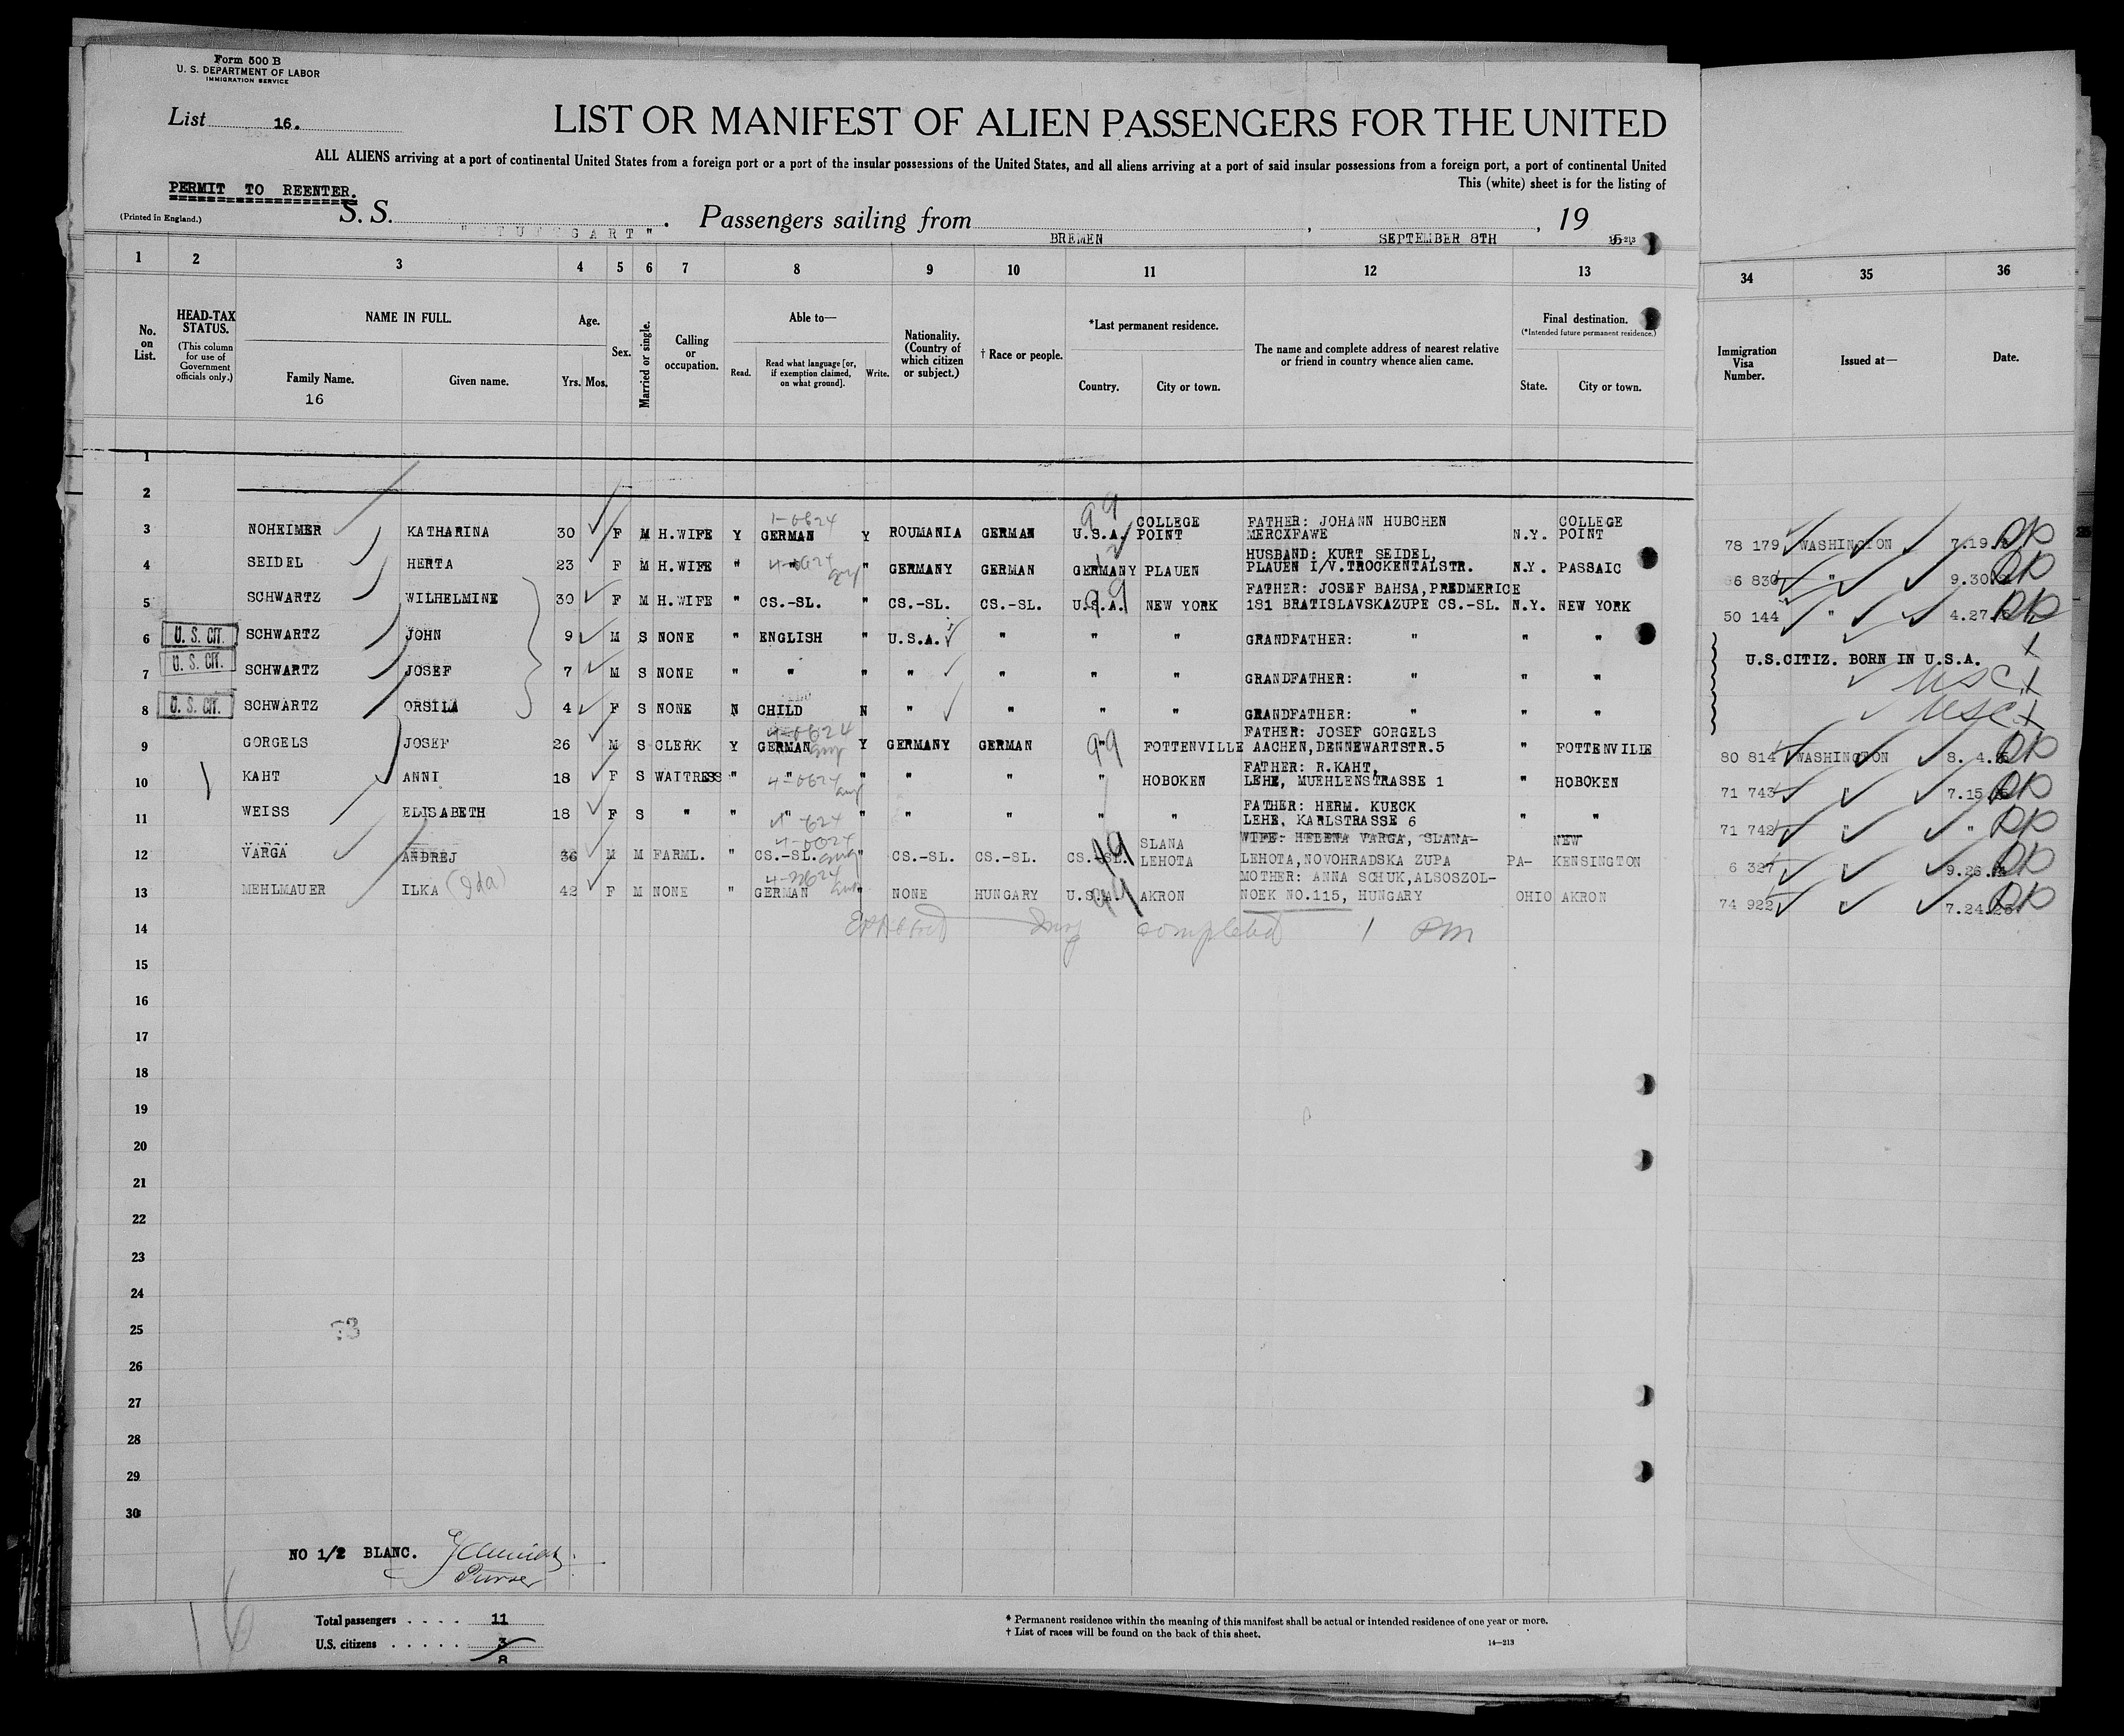 Form 500 B
U. S. DEPARTMENT OF LABOR
IMMIGRATION SERVICE
List 16.
LIST OR MANIFEST OF ALIEN PASSENGERS FOR THE UNITED
ALL ALIENS arriving at a port of continental United States from a foreign port or a port of the insular possessions of the United States, and all aliens arriving at a port of said insular possessions from a foreign port, a port of continental United
This (white) sheet is for the listing of
PERMIT TO REENTER.
(Printed in England.)
S. S. Passengers sailing from , , 19
BREMEN SEPTEMBER 8TH
1 2 3 4 5 6 7 8 9 10 11 12 13 34 35 36
No. on List.
HEAD-TAX STATUS.
(This column for use of Government officials only.)
NAME IN FULL.
Family Name. Given name.
16
Age.
Yrs. Mos.
Sex.
Married or single.
Calling or occupation.
Able to—
Read. Read what language [or, if exemption claimed, on what ground]. Write.
Nationality. (Country of which citizen or subject.)
† Race or people.
*Last permanent residence.
Country. City or town.
The name and complete address of nearest relative or friend in country whence alien came.
Final destination.
(*Intended future permanent residence.)
State. City or town.
Immigration Visa Number.
Issued at—
Date.
1
2
3 NOHEIMER KATHARINA 30 F M H.WIFE Y GERMAN Y ROUMANIA GERMAN U.S.A. COLLEGE POINT FATHER: JOHANN HUBCHEN MERCXFAWE N.Y. COLLEGE POINT 78 179 WASHINGTON 7.19.
4 SEIDEL HERTA 23 F M H.WIFE " " " GERMANY GERMAN GERMANY PLAUEN HUSBAND: KURT SEIDEL, PLAUEN I/V.TROCKENTALSTR. N.Y. PASSAIC 6 830 " 9.30.
5 SCHWARTZ WILHELMINE 30 F M H.WIFE " CS.-SL. " CS.-SL. CS.-SL. U.S.A. NEW YORK FATHER: JOSEF BAHSA,PREDMERICE 181 BRATISLAVSKAZUPE CS.-SL. N.Y. NEW YORK 50 144 " 4.27.
6 U. S. CIT. SCHWARTZ JOHN 9 M S NONE " ENGLISH " U.S.A. " " " GRANDFATHER: " " "
U.S.CITIZ. BORN IN U.S.A.
7 U. S. CIT. SCHWARTZ JOSEF 7 M S NONE " " " " " " " GRANDFATHER: " " " USC
8 U. S. CIT. SCHWARTZ ORSILA 4 F S NONE N CHILD N " " " " GRANDFATHER: " " " USC
9 GORGELS JOSEF 26 M S CLERK Y GERMAN Y GERMANY GERMAN " FOTTENVILLE FATHER: JOSEF GORGELS AACHEN,DENNEWARTSTR.5 " FOTTENVILLE 80 814 WASHINGTON 8. 4.
10 KAHT ANNI 18 F S WAITRESS " " " " " " HOBOKEN FATHER: R.KAHT, LEHE, MUEHLENSTRASSE 1 " HOBOKEN 71 743 " 7.15.
11 WEISS ELISABETH 18 F S " " " " " " " " FATHER: HERM. KUECK LEHE, KARLSTRASSE 6 " " 71 742 " "
12 VARGA ANDREJ 36 M M FARML. " CS.-SL. " CS.-SL. CS.-SL. CS.-SL. SLANA LEHOTA WIFE: HELENA VARGA, SLANA-LEHOTA,NOVOHRADSKA ZUPA PA- NEW KENSINGTON 6 327 " 9.26.
13 MEHLMAUER ILKA (Ida) 42 F M NONE " GERMAN " NONE HUNGARY U.S.A. AKRON MOTHER: ANNA SCHUK,ALSOSZOL-NOEK NO.115, HUNGARY OHIO AKRON 74 922 " 7.24.25.
14 completed 1 PM
15
16
17
18
19
20
21
22
23
24
25
26
27
28
29
30
NO 1/2 BLANC.
Purser
16
Total passengers . . . . 11
U.S. citizens . . . . . 3
8
* Permanent residence within the meaning of this manifest shall be actual or intended residence of one year or more.
† List of races will be found on the back of this sheet.
14—213